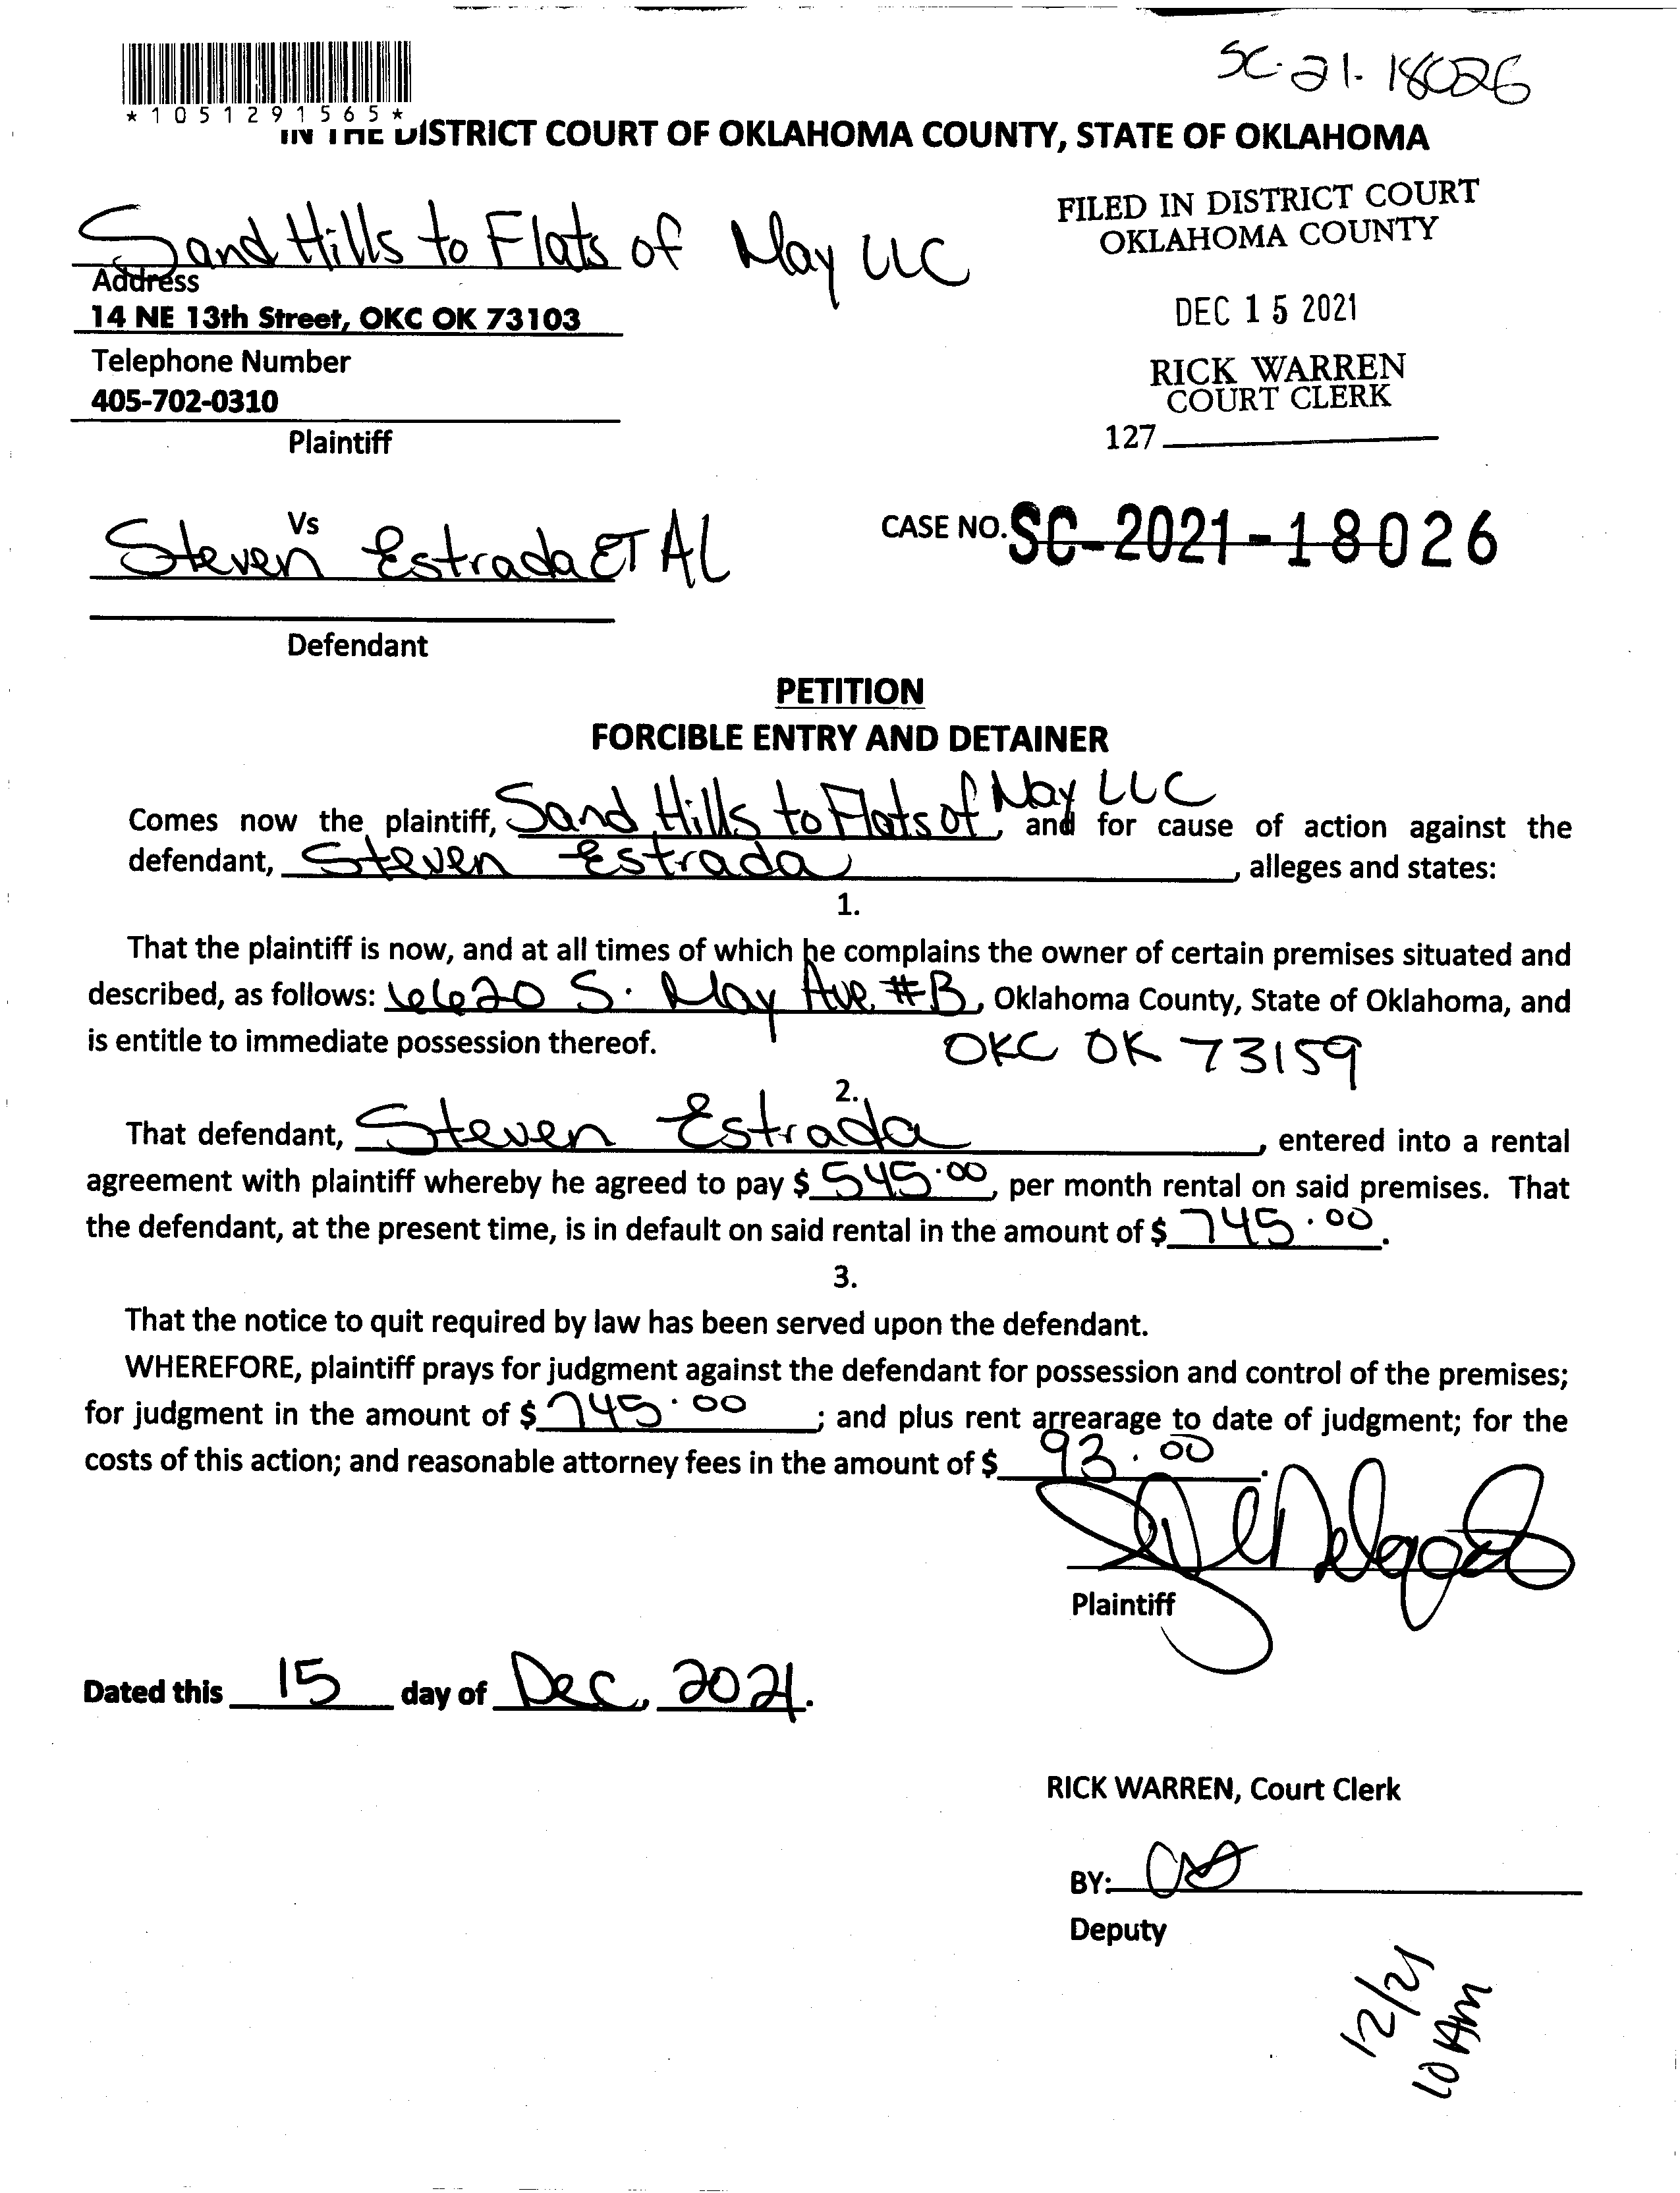 SC-21-18026
*1051291565*
IN THE DISTRICT COURT OF OKLAHOMA COUNTY, STATE OF OKLAHOMA
Sand Hills to Flats of May LLC
Address
14 NE 13th Street, OKC OK 73103
Telephone Number
405-702-0310
Plaintiff
FILED IN DISTRICT COURT
OKLAHOMA COUNTY
DEC 15 2021
RICK WARREN
COURT CLERK
127
Vs
Steven Estrada ET AL
Defendant
CASE NO. SC-2021-18026
PETITION
FORCIBLE ENTRY AND DETAINER
Comes now the plaintiff, Sand Hills to Flats of May LLC, and for cause of action against the
defendant, Steven Estrada, alleges and states:
1.
That the plaintiff is now, and at all times of which he complains the owner of certain premises situated and
described, as follows: 6620 S. May Ave #B, Oklahoma County, State of Oklahoma, and
is entitle to immediate possession thereof. OKC OK 73159
2.
That defendant, Steven Estrada, entered into a rental
agreement with plaintiff whereby he agreed to pay $ 545.00, per month rental on said premises. That
the defendant, at the present time, is in default on said rental in the amount of $ 745.00.
3.
That the notice to quit required by law has been served upon the defendant.
WHEREFORE, plaintiff prays for judgment against the defendant for possession and control of the premises;
for judgment in the amount of $ 745.00; and plus rent arrearage to date of judgment; for the
costs of this action; and reasonable attorney fees in the amount of $ 93.00.
Plaintiff
Dated this 15 day of Dec, 2021.
RICK WARREN, Court Clerk
BY:
Deputy
12/21
10 AM